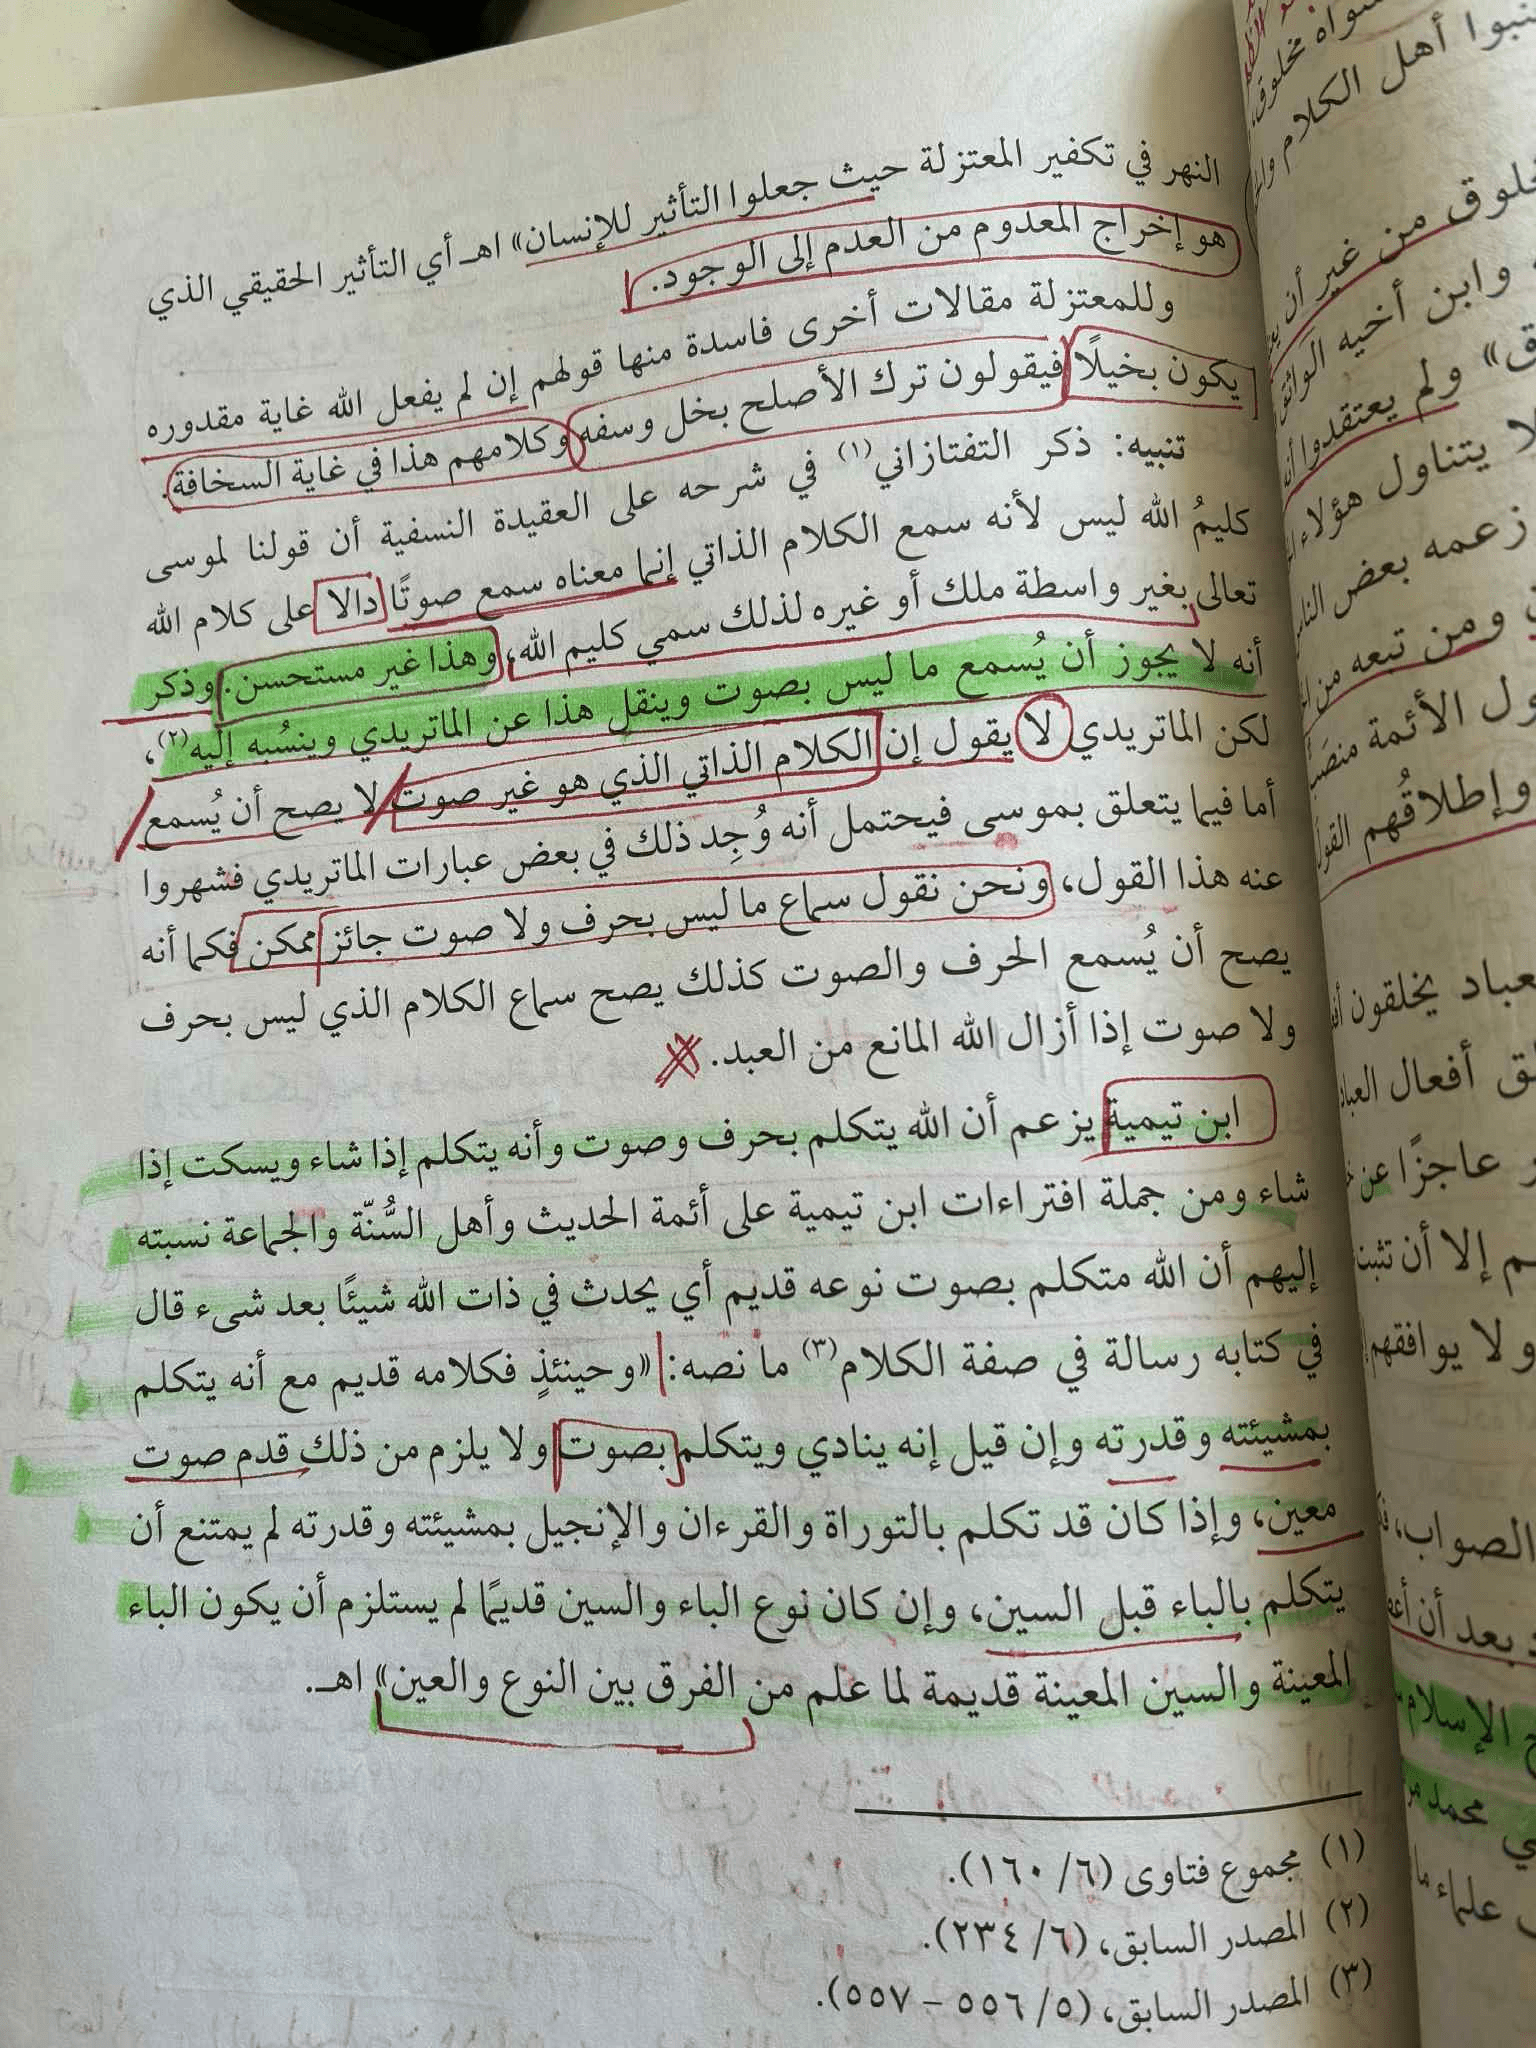 النهر في تكفير المعتزلة حيث جعلوا التأثير للإنسان» اهـ أي التأثير الحقيقي الذي
هو إخراج المعدوم من العدم إلى الوجود.
وللمعتزلة مقالات أخرى فاسدة منها قولهم إن لم يفعل الله غاية مقدوره
يكون بخيلًا فيقولون ترك الأصلح بخل وسفه وكلامهم هذا في غاية السخافة.
تنبيه: ذكر التفتازاني(١) في شرحه على العقيدة النسفية أن قولنا لموسى
كليمُ الله ليس لأنه سمع الكلام الذاتي إنما معناه سمع صوتًا دالا على كلام الله
تعالى بغير واسطة ملك أو غيره لذلك سمي كليم الله، وهذا غير مستحسن. وذكر
أنه لا يجوز أن يُسمع ما ليس بصوت وينقل هذا عن الماتريدي وينسُبه إليه(٢)،
لكن الماتريدي لا يقول إن الكلام الذاتي الذي هو غير صوت لا يصح أن يُسمع
أما فيما يتعلق بموسى فيحتمل أنه وُجِد ذلك في بعض عبارات الماتريدي فشهروا
عنه هذا القول، ونحن نقول سماع ما ليس بحرف ولا صوت جائز ممكن فكما أنه
يصح أن يُسمع الحرف والصوت كذلك يصح سماع الكلام الذي ليس بحرف
ولا صوت إذا أزال الله المانع من العبد.
ابن تيمية يزعم أن الله يتكلم بحرف وصوت وأنه يتكلم إذا شاء ويسكت إذا
شاء ومن جملة افتراءات ابن تيمية على أئمة الحديث وأهل السُّنّة والجماعة نسبته
إليهم أن الله متكلم بصوت نوعه قديم أي يحدث في ذات الله شيئًا بعد شىء قال
في كتابه رسالة في صفة الكلام(٣) ما نصه: «وحينئذٍ فكلامه قديم مع أنه يتكلم
بمشيئته وقدرته وإن قيل إنه ينادي ويتكلم بصوت ولا يلزم من ذلك قدم صوت
معين، وإذا كان قد تكلم بالتوراة والقرءان والإنجيل بمشيئته وقدرته لم يمتنع أن
يتكلم بالباء قبل السين، وإن كان نوع الباء والسين قديمًا لم يستلزم أن يكون الباء
المعينة والسين المعينة قديمة لما علم من الفرق بين النوع والعين» اهـ.
(١) مجموع فتاوى (٦/ ١٦٠).
(٢) المصدر السابق، (٦/ ٢٣٤).
(٣) المصدر السابق، (٥/ ٥٥٦ – ٥٥٧).
سواه مخلوق،
نبوا أهل الكلام
خلوق من غير أن
وابن أخيه الواثق
ق» ولم يعتقدوا أنه
لا يتناول هؤلاء
زعمه بعض الناس
ومن تبعه من
ول الأئمة
وإطلاقُهم القول
عباد يخلقون
لق أفعال العباد
ر عاجزًا عن
م إلا أن تثبت
ولا يوافقهم
الصواب،
بعد أن
الإسلام
محمد
علماء